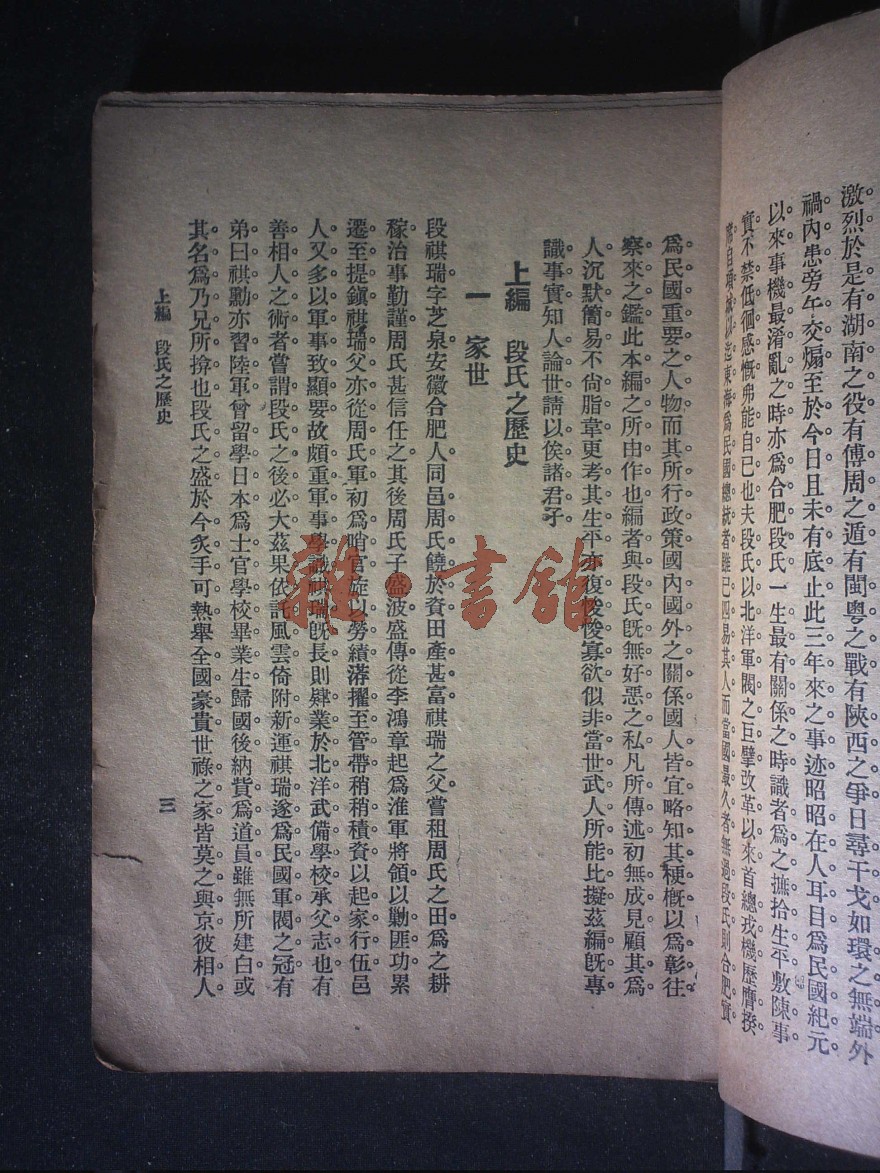 激烈。於是有湖南之役。有傅周之遁。有閩粵之戰。有陝西之爭。日尋干戈。如環之無端。外
禍內患。旁午交煽。至於今日。且未有底止。此三年來之事迹。昭昭在人耳目。爲民國紀元
以來事機最淆亂之時。亦爲合肥段氏一生最有關係之時。識者爲之撫拾生平。敷陳事
實。不禁低徊感慨弗能自已也。夫段氏以北洋軍閥之巨擘。改革以來。首總戎機。歷膺揆
席。自項城以迄東海。爲民國總統者。雖已四易其人。而當國最久者。無過段氏。則合肥實
爲民國重要之人物。而其所行政策。國內國外之關係。國人皆宜略知其梗概。以爲彰往
察來之鑑。此本編之所由作也。編者與段氏旣無好惡之私。凡所傳述。初無成見。顧其爲
人沉默簡易。不尙脂韋。更考其生平。亦復寡欲。似非當世武人所能比擬。茲編旣專
識事實。知人論世。請以俟諸君子。
上編 段氏之歷史
一 家世
段祺瑞。字芝泉。安徽合肥人。同邑周氏饒於資。田產甚富。祺瑞之父嘗租周氏之田爲之耕
稼。治事勤謹。周氏甚信任之。其後周氏子盛波盛傳從李鴻章起爲淮軍將領。以剿匪功累
遷至提鎭。祺瑞父亦從周氏軍。初爲哨官。旋以勞績洊擢至管帶。稍稍積資以起家。行伍邑
人又多以軍事致顯要。故頗重軍事學識。祺瑞旣長。則肄業於北洋武備學校。承父志也。有
善相人之術者。嘗謂段氏之後必大。茲果依託風雲。倚附新運。祺瑞遂爲民國軍閥之冠。有
弟曰祺勳。亦習陸軍。曾留學日本。爲士官學校畢業生。歸國後納貲爲道員。雖無所建白。或
其名爲乃兄所揜也。段氏之盛。於今炙手可熱。舉全國豪貴世祿之家。皆莫之與京。彼相人
上編 段氏之歷史
三
雜·書館